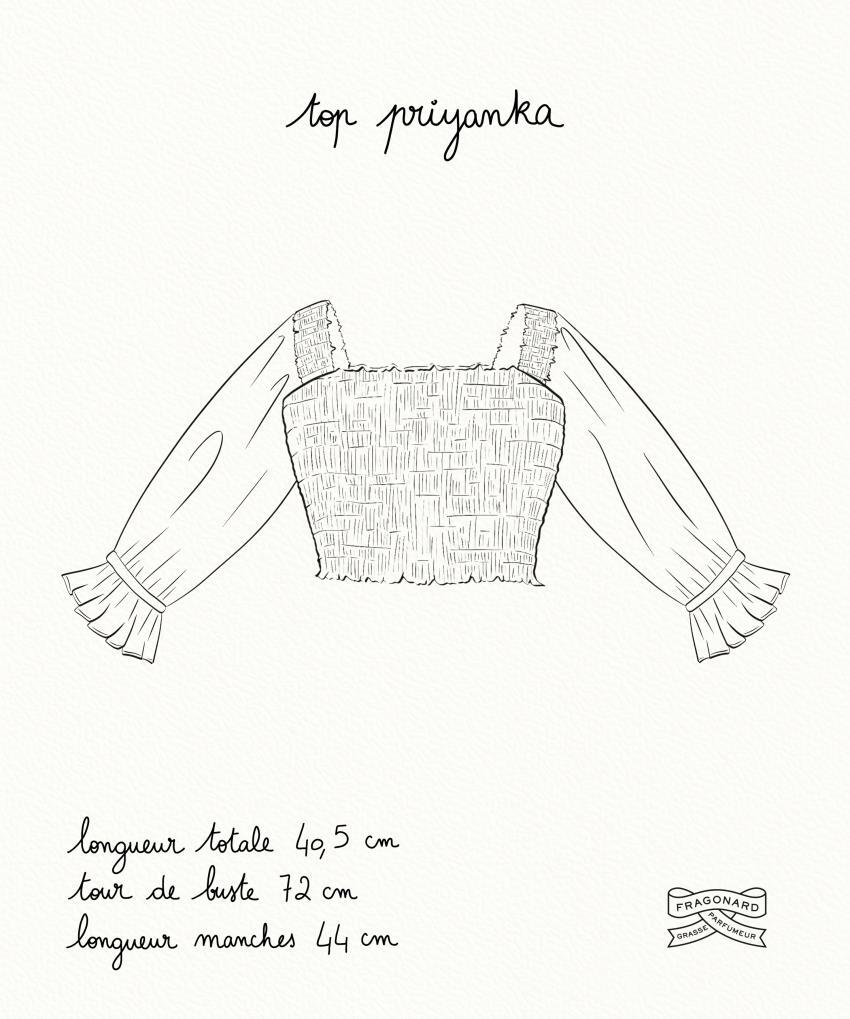 top priyanka
longueur totale 40,5 cm
tour de buste 72 cm
longueur manches 44 cm
FRAGONARD
GRASSE PARFUMEUR